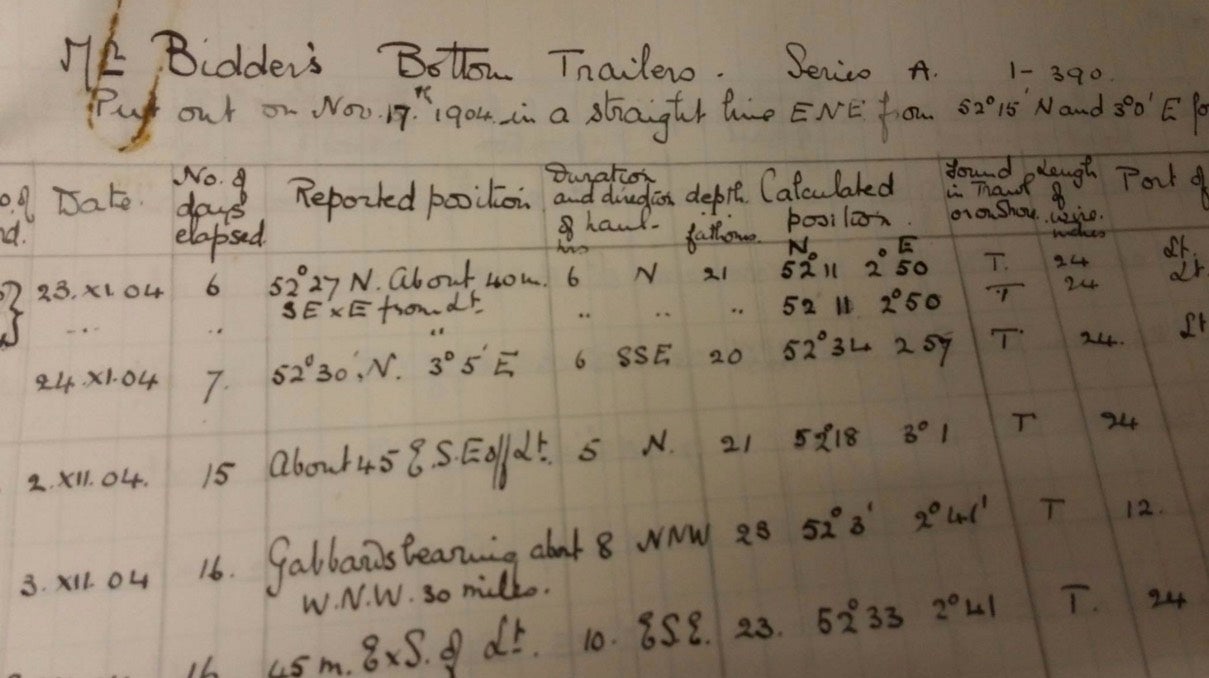 Mr Bidder's Bottom Trailers. Series A. 1-390.
Put out on Nov. 17th 1904 in a straight line ENE from 52°15' N and 3°0' E fo
o. of nd. Date. No. of days elapsed. Reported position Duration and direction of haul. hrs depth. fathoms. Calculated position. N. E Found in Trawl or on Shore. Length of wire. inches Port of
23.XI.04 6 52°27 N. About 40m. 6 N 21 52°11 2°50 T. 24 Lt.
SE x E from Lt.
.... .. " .. .. .. 52 11 2°50 T 24 Lt.
24.XI.04 7. 52°30'.N. 3°5'E 6 SSE 20 52°34 2 57 T 24. Lt
2.XII.04. 15 About 45 E.S.E off Lt. 5 N. 21 52°18 3°1 T 24
3.XII.04 16. Gabbards bearing about 8 NNW 23 52°3' 2°41' T 12.
W.N.W. 30 miles.
16 45 m. ExS. of Lt. 10. ESE. 23. 52°33 2°41 T. 24